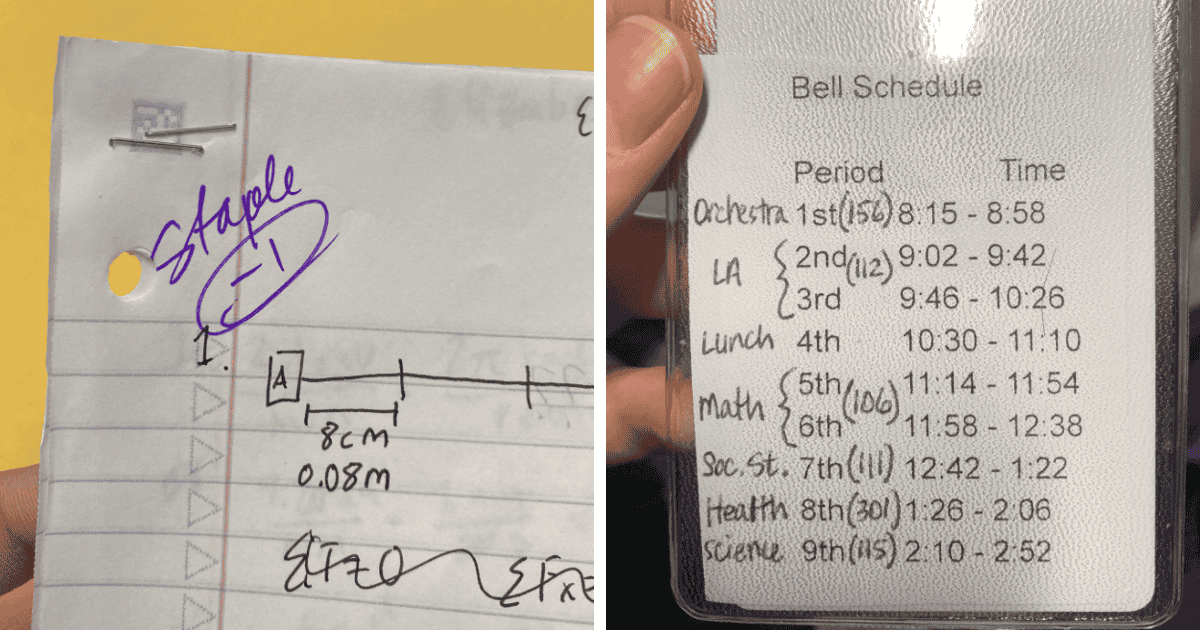 Staple
-1
1.
A
8cm
0.08m
Bell Schedule
Period Time
Orchestra 1st (156) 8:15 - 8:58
LA 2nd (112) 9:02 - 9:42
3rd 9:46 - 10:26
Lunch 4th 10:30 - 11:10
Math 5th (106) 11:14 - 11:54
6th 11:58 - 12:38
Soc. St. 7th (111) 12:42 - 1:22
Health 8th (301) 1:26 - 2:06
Science 9th (115) 2:10 - 2:52